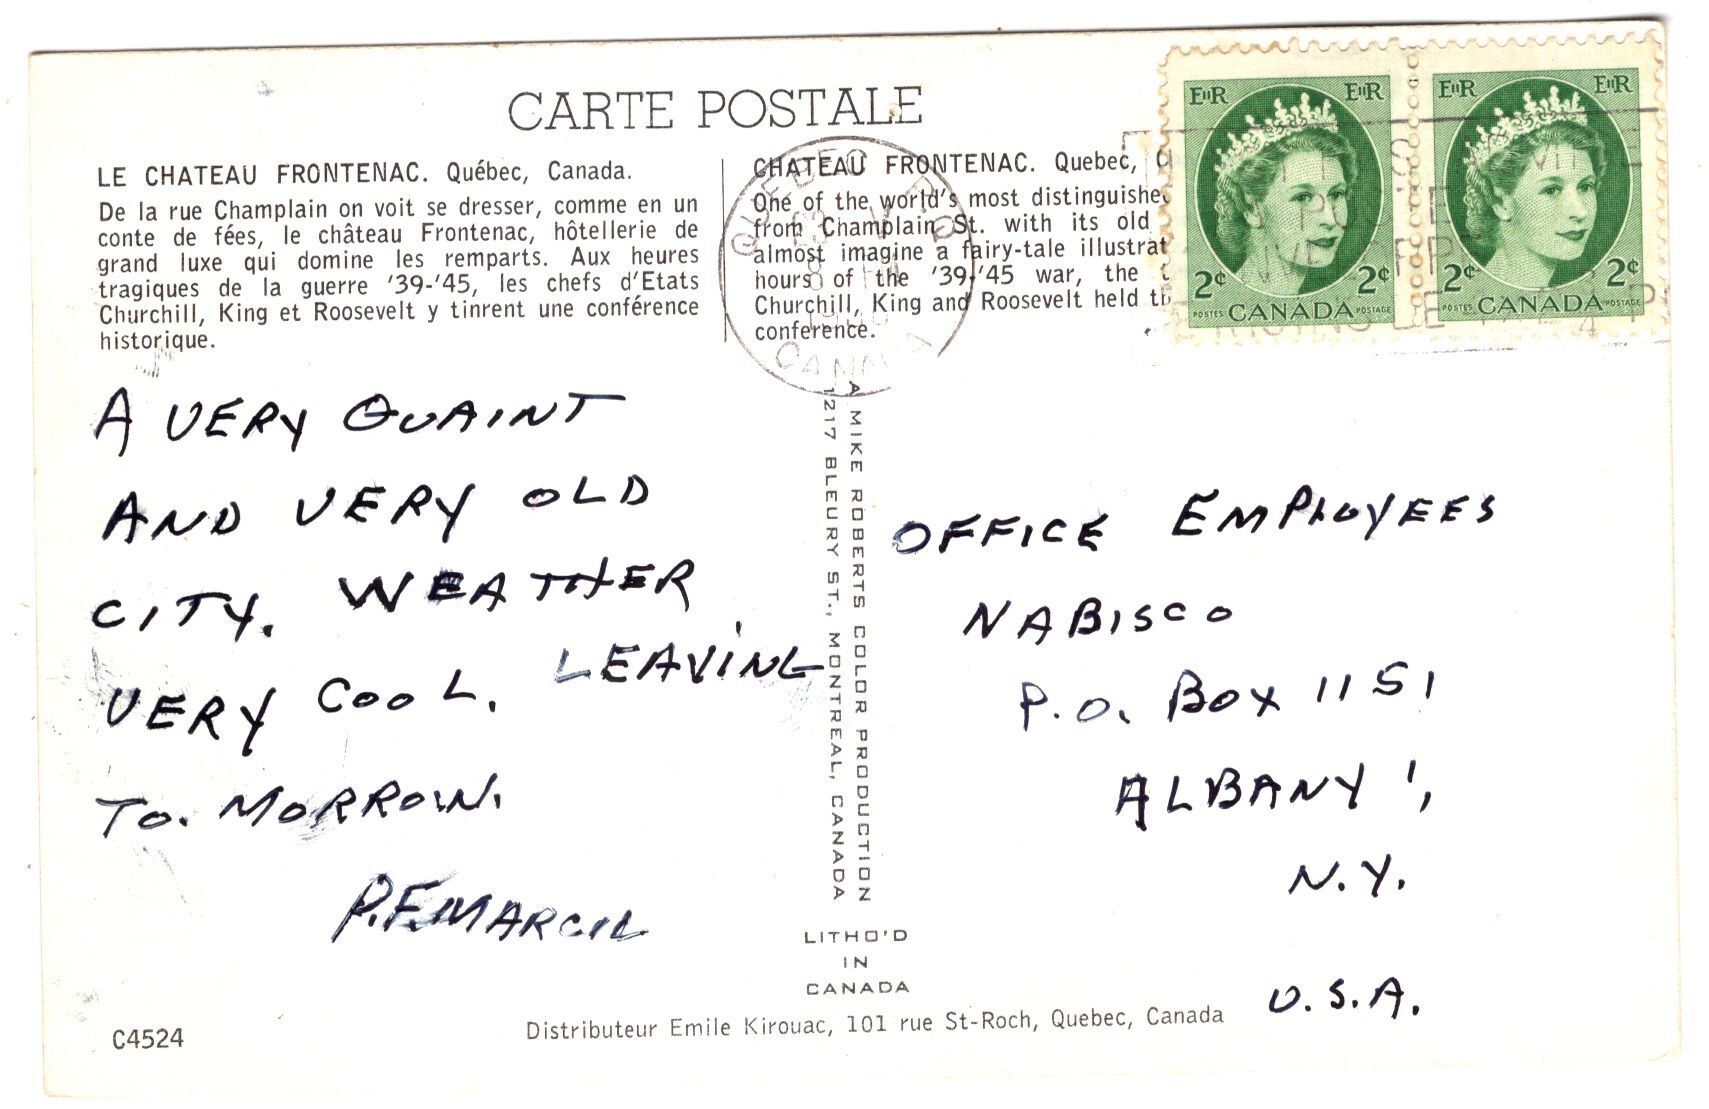 CARTE POSTALE
LE CHATEAU FRONTENAC. Québec, Canada.
De la rue Champlain on voit se dresser, comme en un
conte de fées, le château Frontenac, hôtellerie de
grand luxe qui domine les remparts. Aux heures
tragiques de la guerre '39-'45, les chefs d'Etats
Churchill, King et Roosevelt y tinrent une conférence
historique.
CHATEAU FRONTENAC. Quebec,
One of the world's most distinguishe
from Champlain St. with its old
almost imagine a fairy-tale illustrat
hours of the '39-'45 war, the
Churchill, King and Roosevelt held th
conference.
QUEBEC
CANADA
EIIR EIIR
2¢ 2¢
POSTES CANADA POSTAGE
EIIR EIIR
2¢ 2¢
POSTES CANADA POSTAGE
A VERY QUAINT
AND VERY OLD
CITY. WEATHER
VERY COOL. LEAVING
TO. MORROW.
P.F. MARCIL
A MIKE ROBERTS COLOR PRODUCTION
1217 BLEURY ST., MONTREAL, CANADA
LITHO'D
IN
CANADA
OFFICE EMPLOYEES
NABISCO
P.O. BOX 1151
ALBANY ',
N.Y.
U.S.A.
C4524
Distributeur Emile Kirouac, 101 rue St-Roch, Quebec, Canada